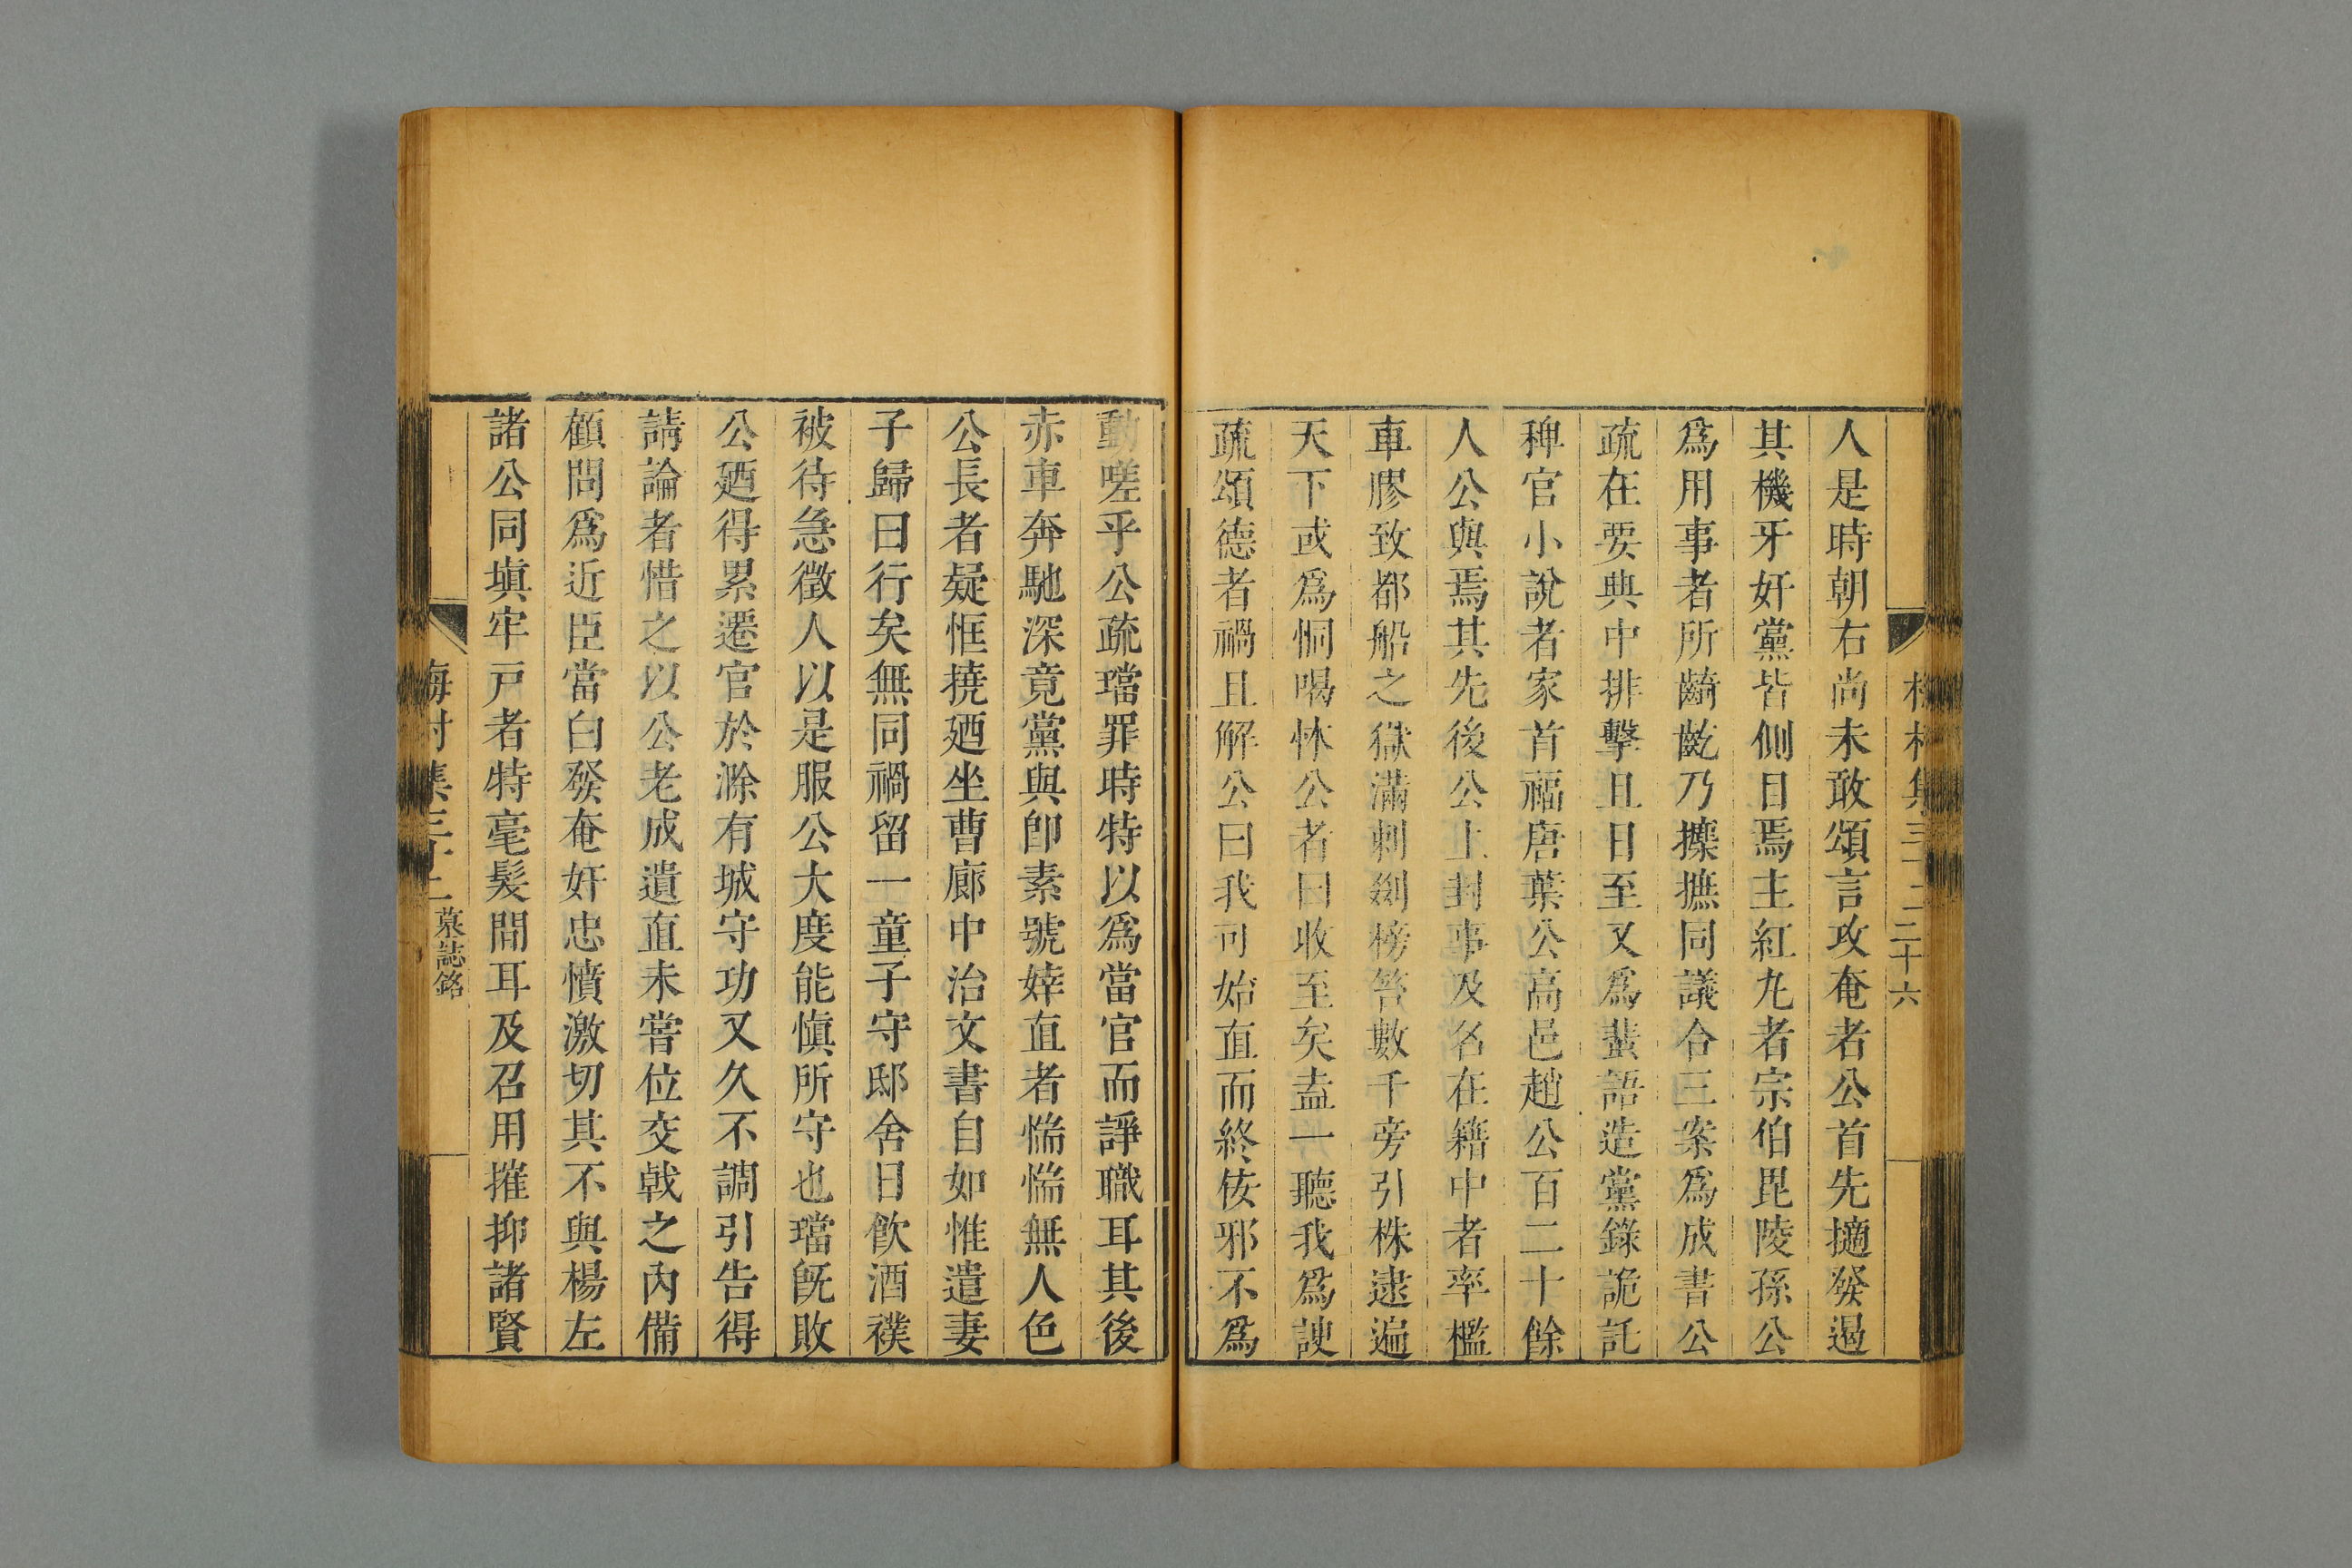 人是時朝右尚未敢頌言攻奄者公首先擿發遏
其機牙奸黨皆側目焉主紅丸者宗伯毘陵孫公
爲用事者所齮齕乃攈摭同議合三案爲成書公
疏在要典中排擊且日至又爲蜚語造黨錄詭託
稗官小說者家首福唐葉公高邑趙公百二十餘
人公與焉其先後公上封事及名在籍中者率檻
車膠致都船之獄滿刺剟榜笞數千旁引株逮遍
天下或爲恫喝怵公者曰收至矣盍一聽我爲諛
疏頌德者禍且解公曰我可始直而終佞邪不爲
二十六
動嗟乎公疏璫罪時特以爲當官而諍職耳其後
赤車奔馳深竟黨與卽素號婞直者惴惴無人色
公長者疑恇撓廼坐曹廊中治文書自如惟遣妻
子歸曰行矣無同禍留一童子守邸舍日飮酒襆
被待急徵人以是服公大度能愼所守也璫旣敗
公廼得累遷官於滁有城守功又久不調引告得
請論者惜之以公老成遺直未嘗位交戟之內備
顧問爲近臣當白發奄奸忠憤激切其不與楊左
諸公同塡牢戸者特毫髮間耳及召用摧抑諸賢
墓誌銘